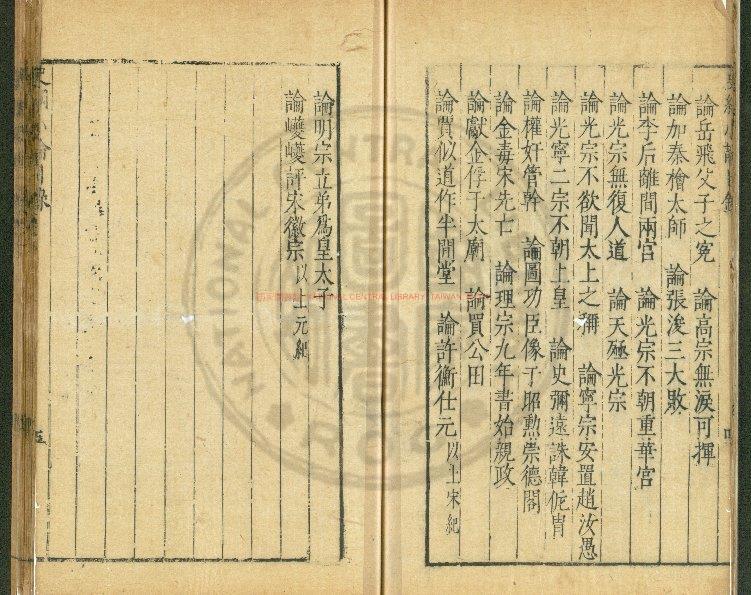 論岳飛父子之冤　論高宗無淚可揮
論加秦檜太師　論張浚三大敗
論李后離間兩宮　論光宗不朝重華宮
論光宗無復人道　論天殛光宗
論光宗不欲聞太上之稱　論寧宗安置趙汝愚
論光寧二宗不朝上皇　論史彌遠誅韓侂冑
論權奸管幹　論圖功臣像于昭勲崇德閣
論金毒宋先亡　論理宗九年書始親政
論獻金俘于太廟　論買公田
論賈似道作半閒堂　論許衡仕元 以上宋紀
論明宗立弟為皇太子
論巙巙評宋徽宗 以上元紀
五
NATIONAL CENTRAL LIBRARY, TAIWAN